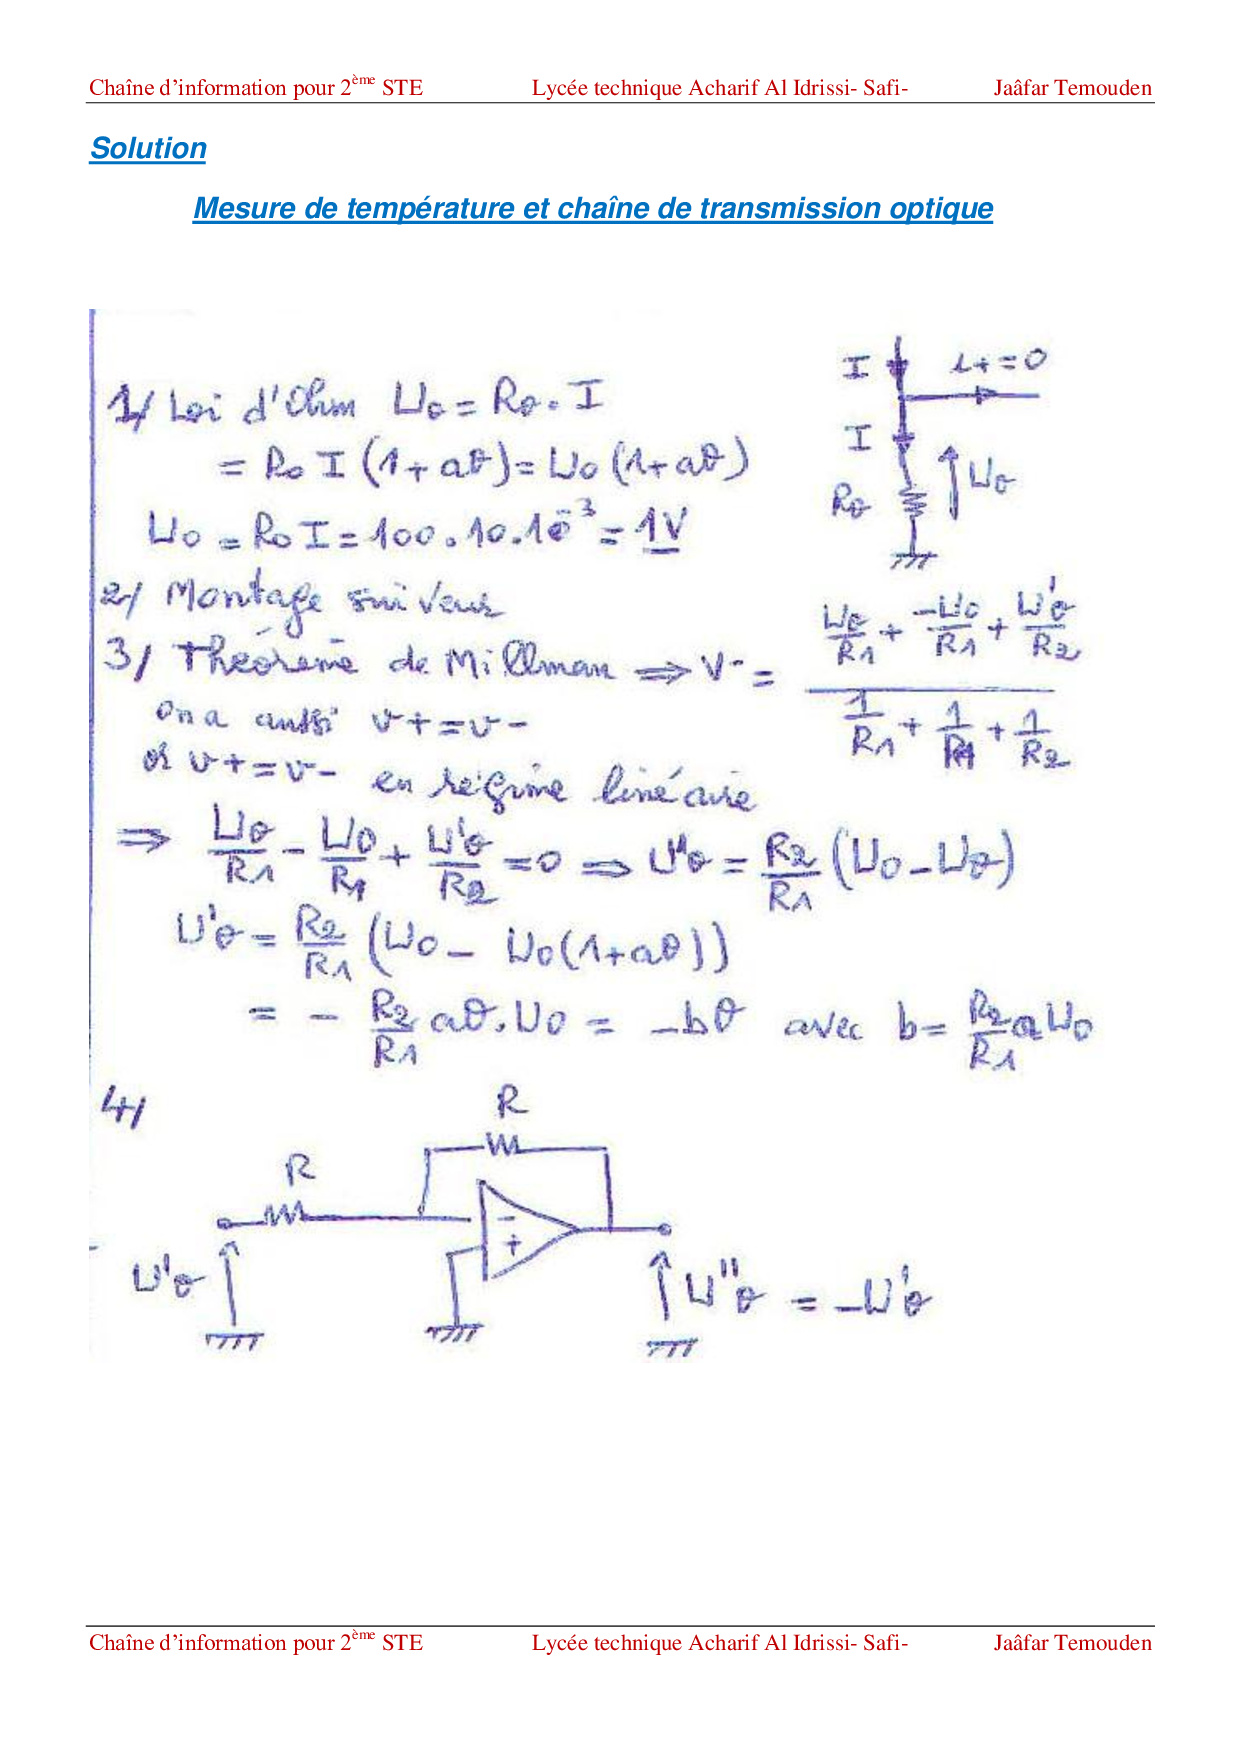 Chaîne d'information pour 2ème STE Lycée technique Acharif Al Idrissi- Safi- Jaâfar Temouden
Solution
Mesure de température et chaîne de transmission optique
I i+=0
1/ Loi d'Ohm Uθ = Rθ . I
I
= R0 I (1+aθ) = U0 (1+aθ)
Rθ Uθ
U0 = R0 I = 100.10.10^-3 = 1V
2/ Montage suiveur
3/ Théorème de Millman ⇒ V- = (Uθ/R1 + -U0/R1 + U'θ/R2) / (1/R1 + 1/R1 + 1/R2)
on a aussi v+ = v-
or v+ = v- en régime linéaire
⇒ Uθ/R1 - U0/R1 + U'θ/R2 = 0 ⇒ U'θ = R2/R1 (U0 - Uθ)
U'θ = R2/R1 (U0 - U0(1+aθ))
= - R2/R1 aθ.U0 = -bθ avec b = R2/R1 a U0
4/
R
R
-
+
U'θ
U''θ = -U'θ
Chaîne d'information pour 2ème STE Lycée technique Acharif Al Idrissi- Safi- Jaâfar Temouden